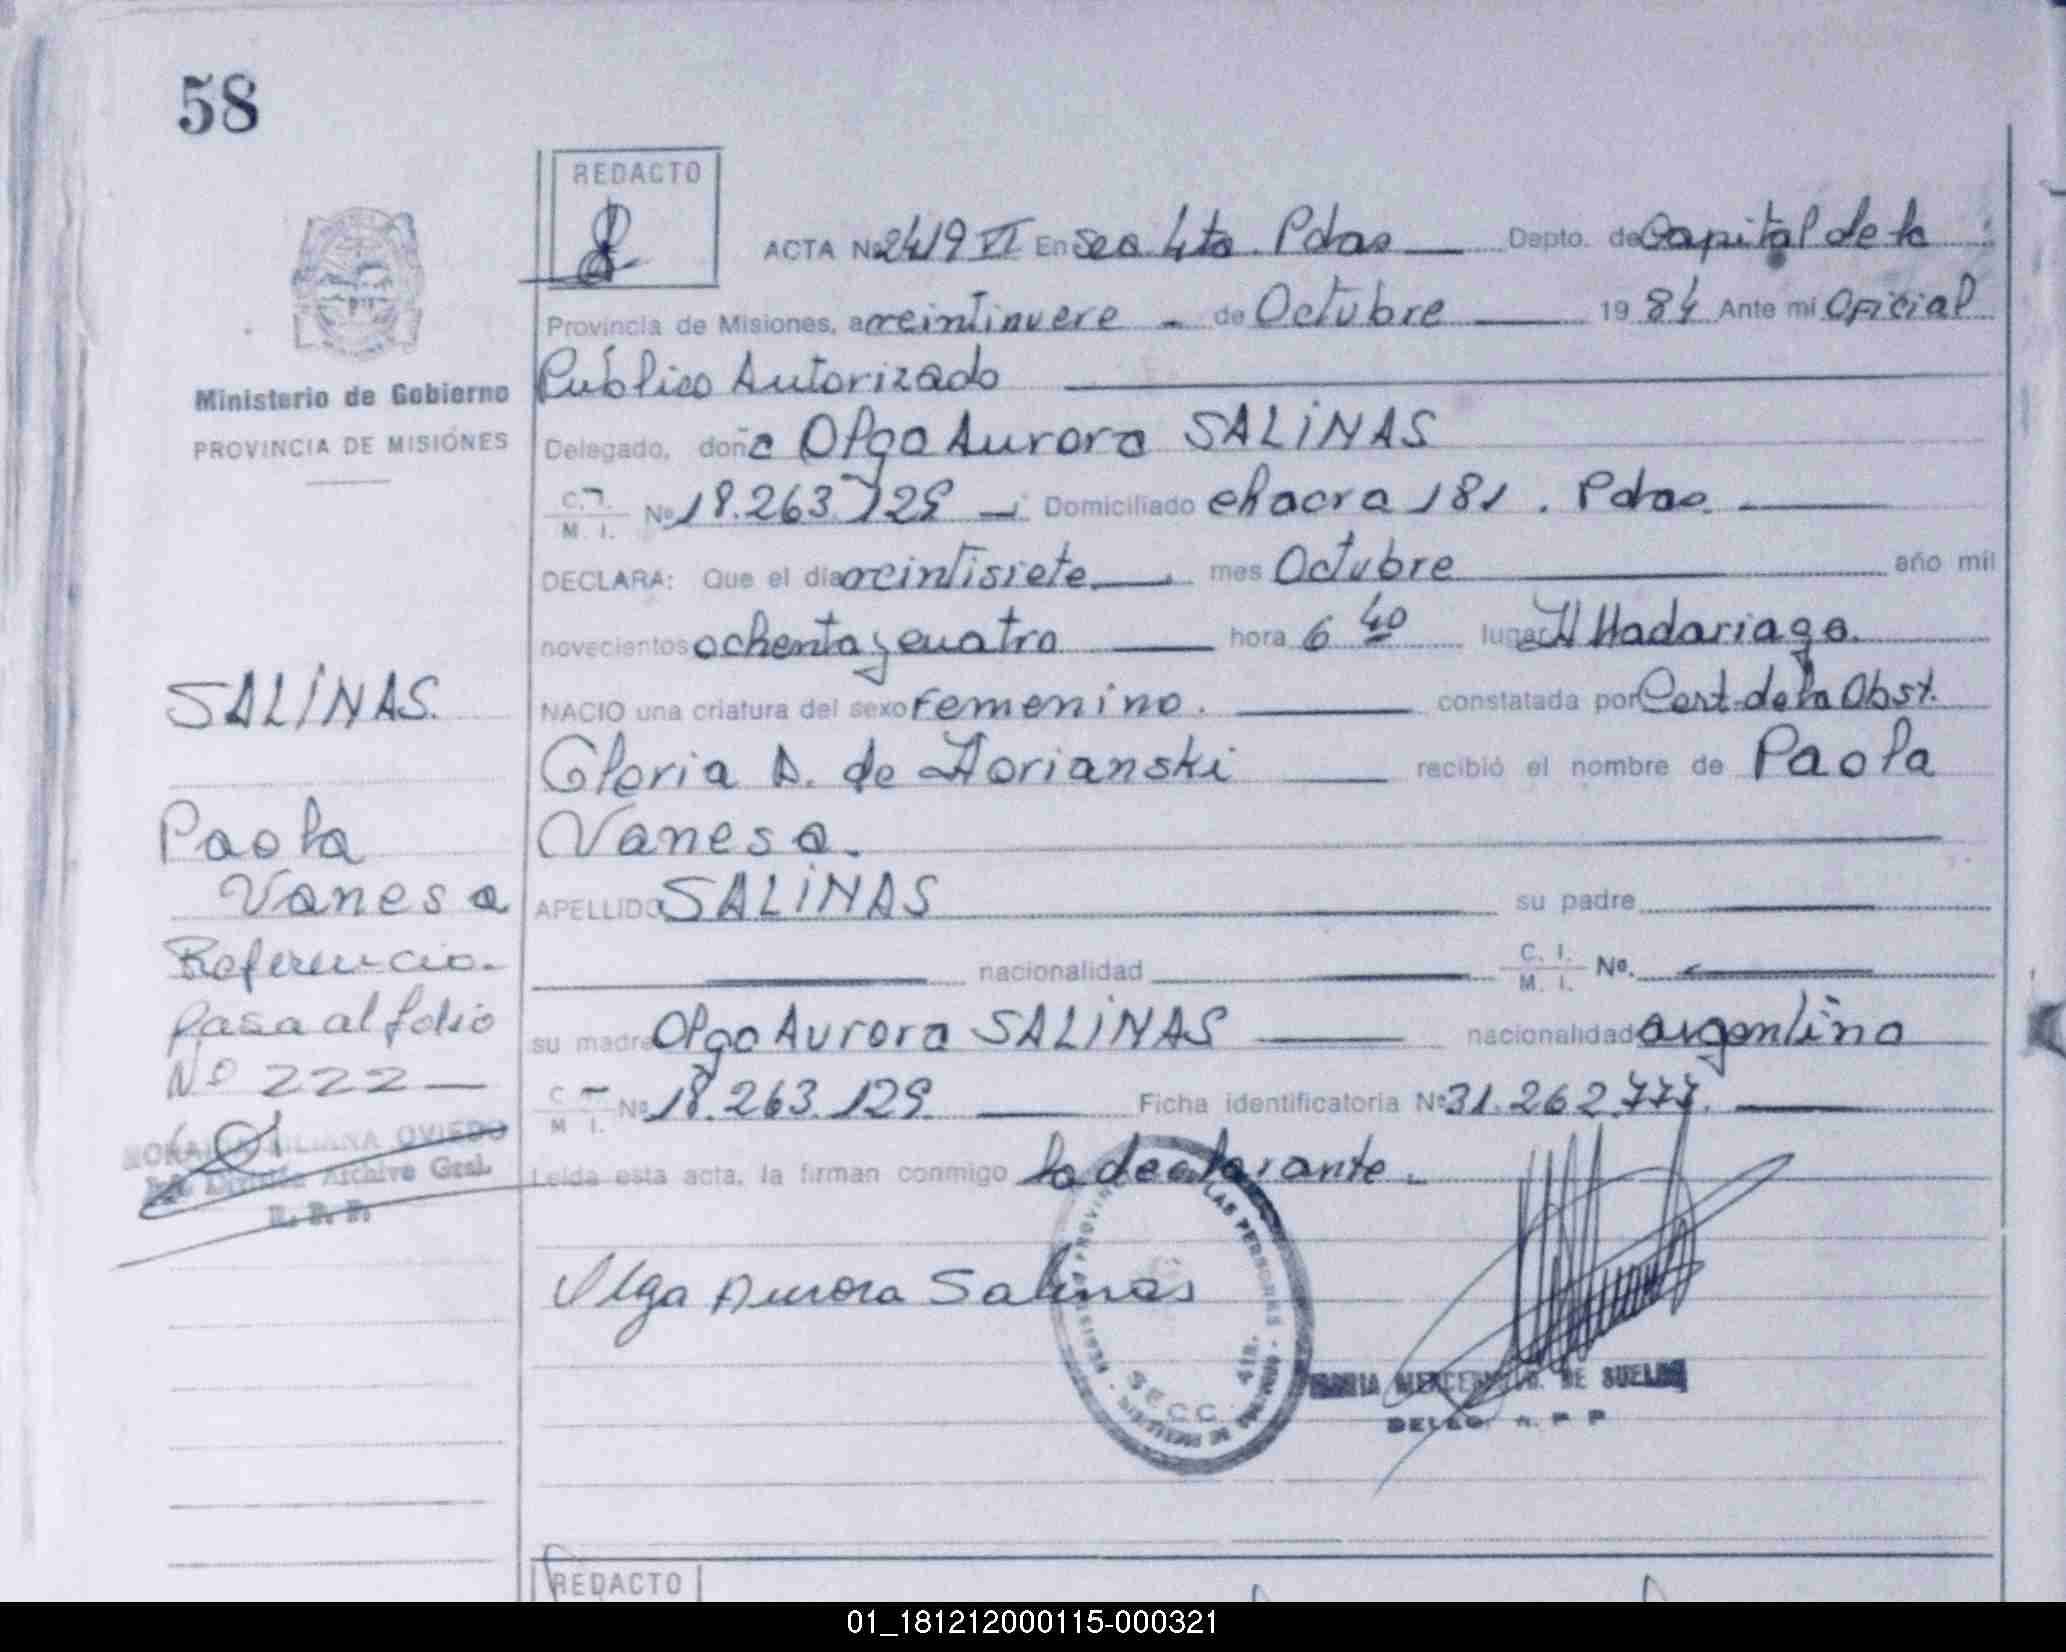 58
REDACTO
ACTA Nº 2419 VI En Sec 4ta. Pdas Depto. de Capital de la
Provincia de Misiones, a veintinueve de Octubre 19 84 Ante mi Oficial
Público Autorizado
Ministerio de Gobierno
PROVINCIA DE MISIONES
Delegado, doña Olga Aurora SALINAS
C. I.
M. I. Nº 18.263.129 Domiciliado chacra 181. Pdas.
DECLARA: Que el día veintisiete mes Octubre año mil
novecientos ochenta y cuatro hora 6 40 lugar H Madariaga.
NACIO una criatura del sexo Femenino. constatada por Cert. de la Obst.
Gloria A. de recibió el nombre de Paola
Vanesa.
APELLIDO SALINAS su padre
nacionalidad C. I. M. I. Nº.
su madre Olga Aurora SALINAS nacionalidad argentina
C I
M I. Nº 18.263.129 Ficha identificatoria Nº 31.262.777.
Leída esta acta, la firman conmigo la declarante.
SALINAS.
Paola
Vanesa
Referencia.
pasa al folio
Nº 222
LILIANA OVIEDO
Jefe División Archivo Gral.
R. P. P.
Olga Aurora Salinas
REGISTRO PROVINCIAL DE LAS PERSONAS
SECC. 4ta.
MARIA DE
R. P. P
REDACTO
01_181212000115-000321